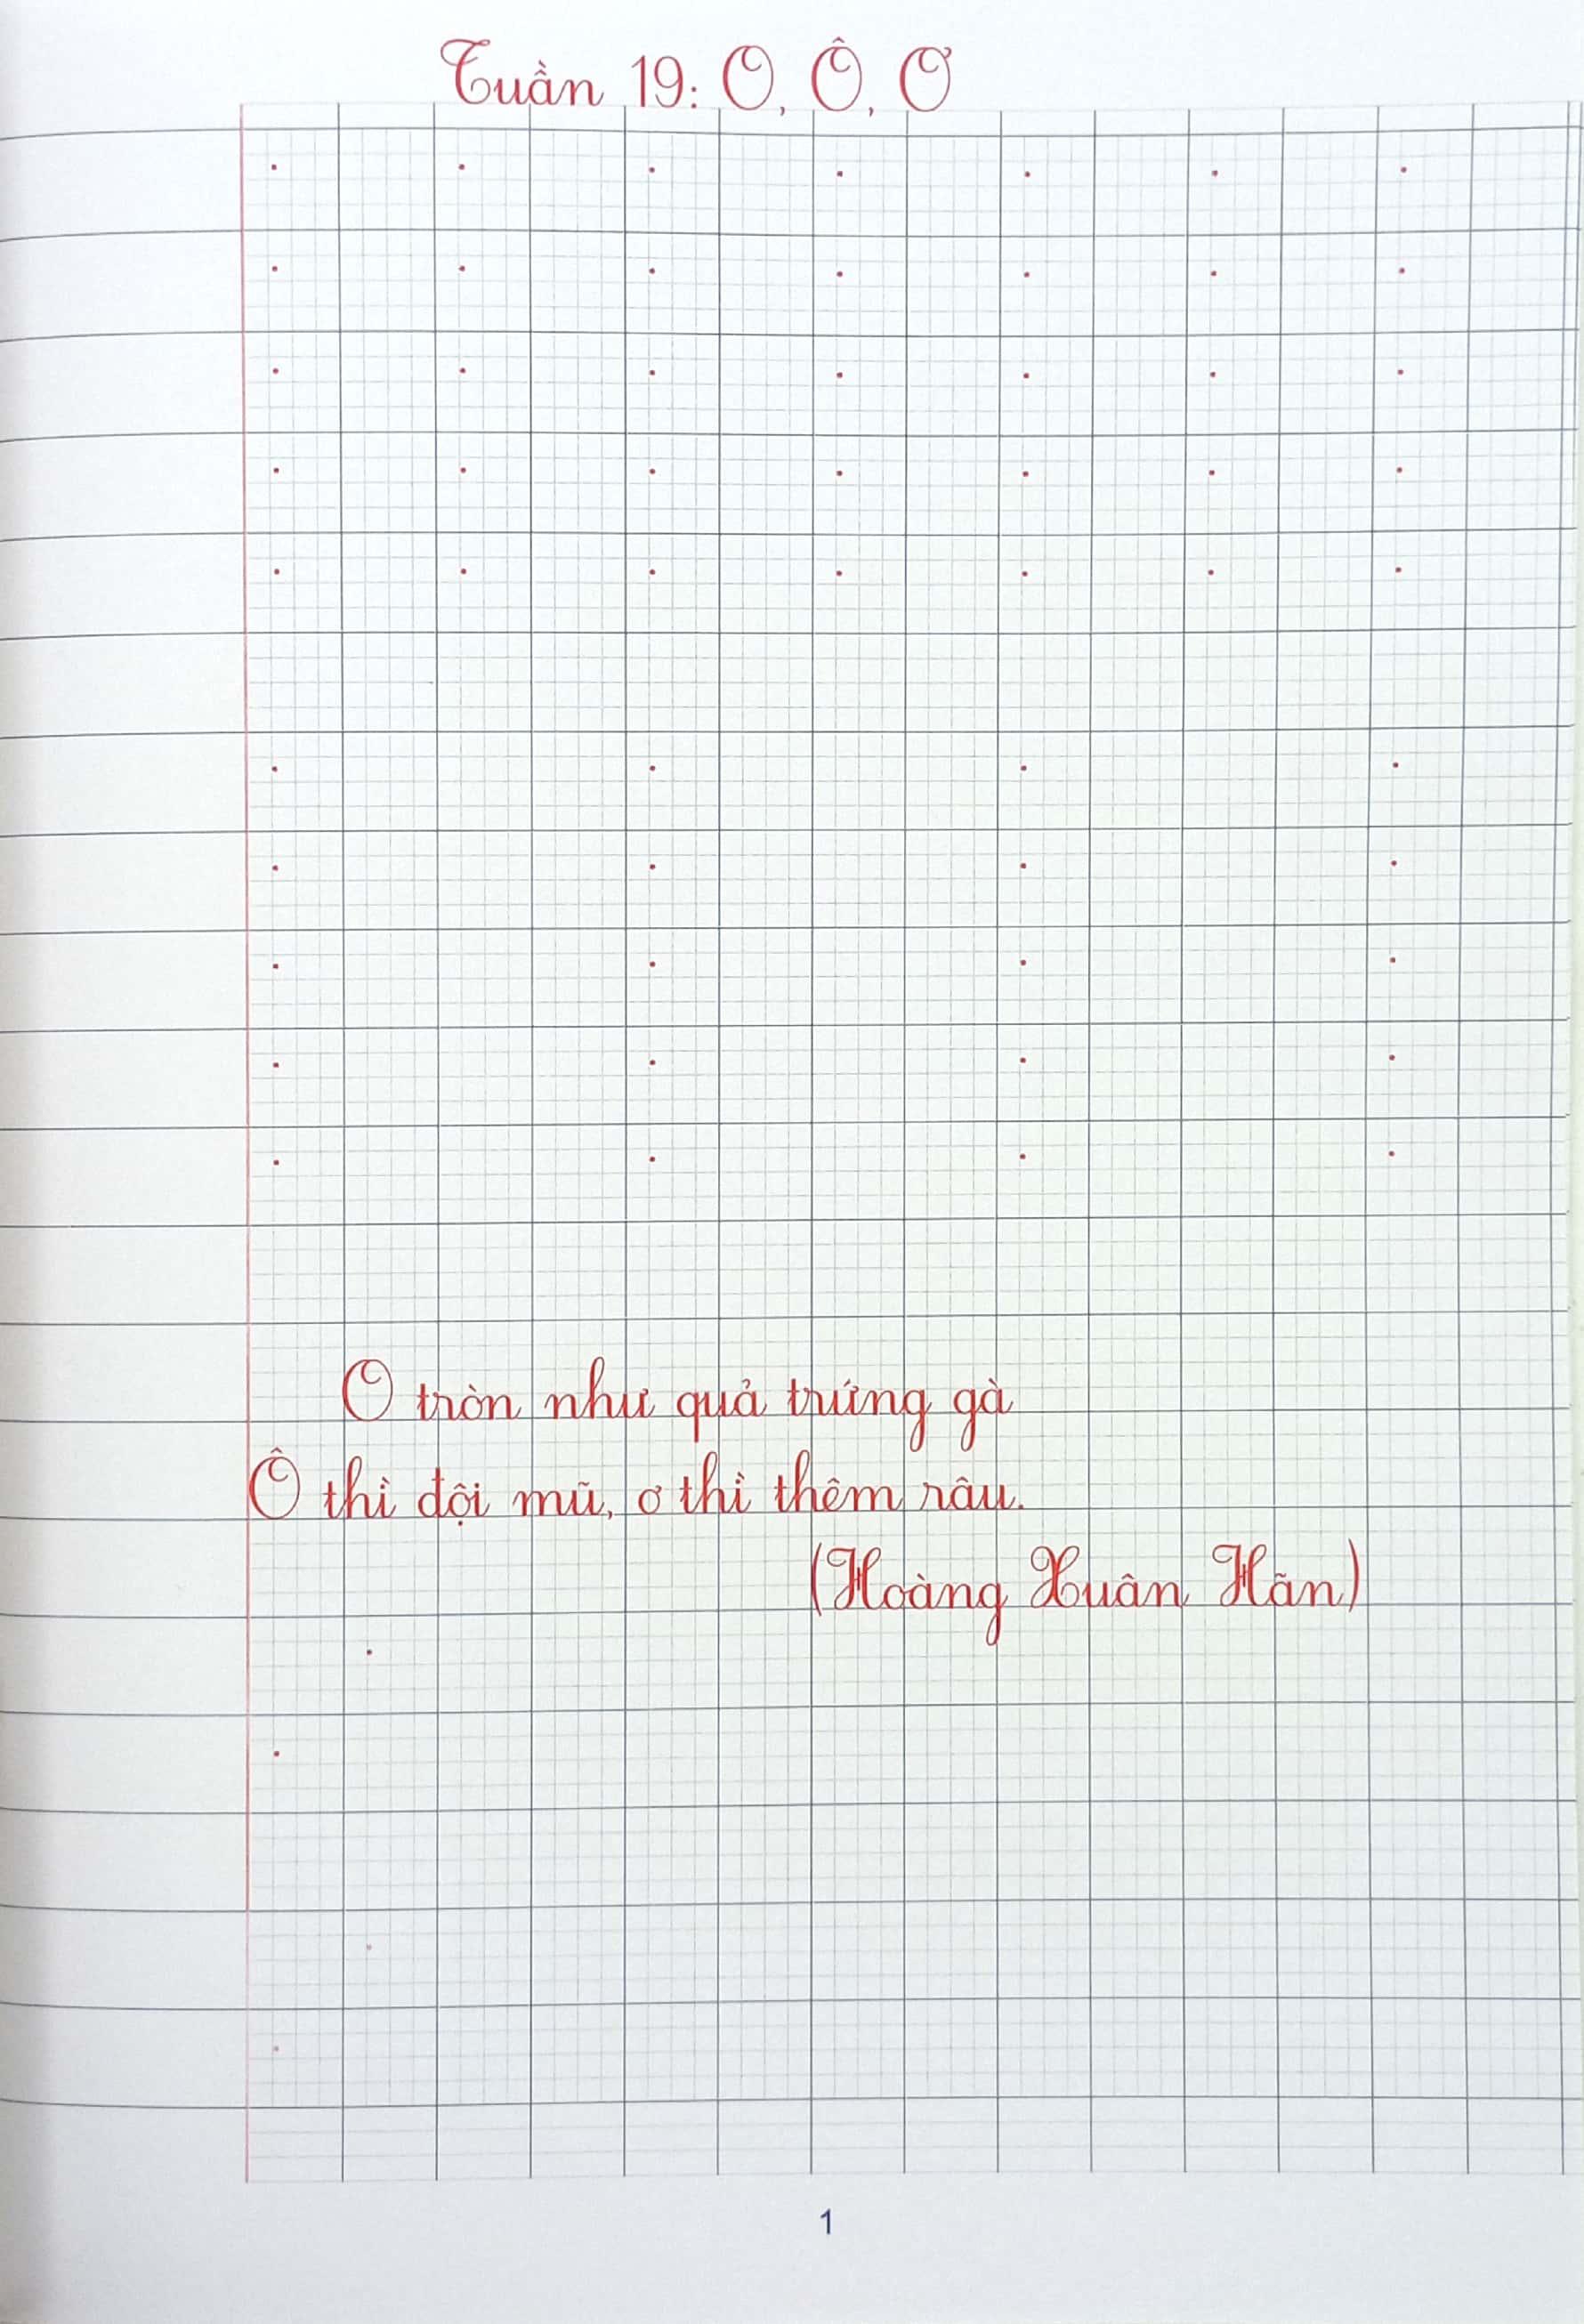 Tuần 19: O, Ô, Ơ
O tròn như quả trứng gà
Ô thì đội mũ, ơ thì thêm râu.
(Hoàng Xuân Hãn)
1